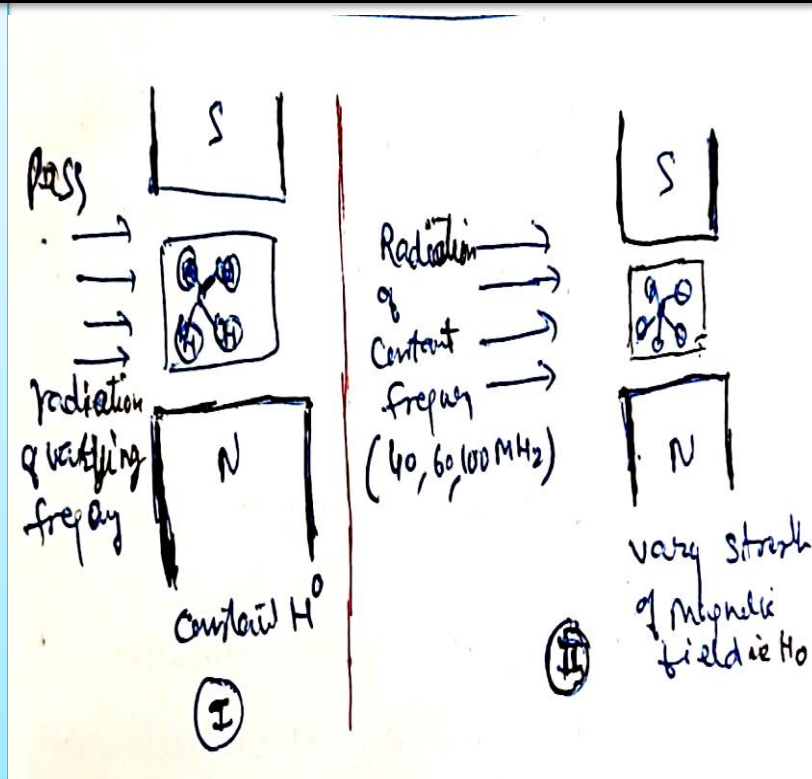 S
Pass
radiation
of varifying
freqay
H
H
N
Constant H°
I
Radiation
of
Constant
freqay
(40, 60, 100 MHz)
S
N
vary strenth
of Magnetic
field ie Ho
II